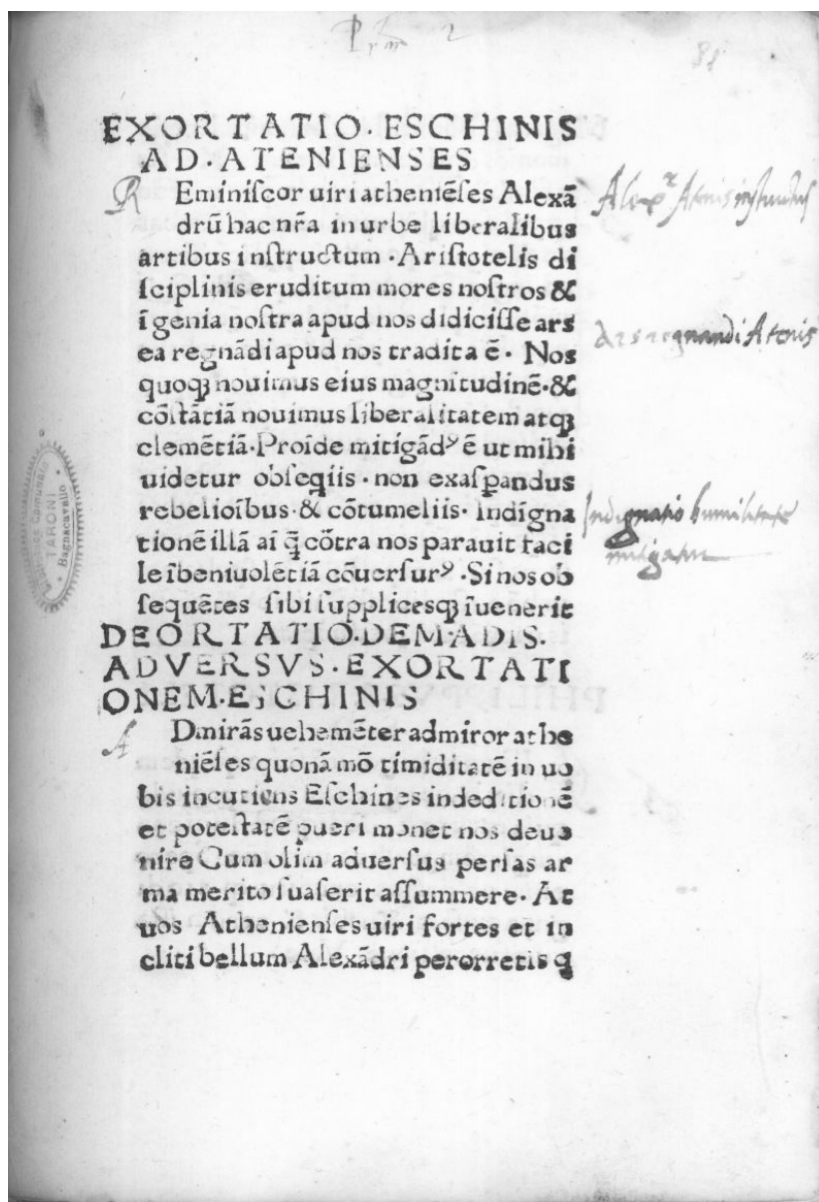 EXORTATIO·ESCHINIS
AD·ATENIENSES
R Eminiſcor uiri atheniēſes Alexā
drū hac nr̄a in urbe liberalibus
artibus inſtructum ·Ariſtotelis di
ſciplinis eruditum mores noſtros &
īgenia noſtra apud nos didiciſſe ars
ea regnādi apud nos tradita ē· Nos
quoqꝫ nouimus eius magnitudinē·&
cōſtātiā nouimus liberalitatem atqꝫ
clemētiā·Proīde mitigādꝰ ē ut mihi
uidetur obſeqiis · non exaſpandus
rebelioībus· & cōtumeliis· indigna
tionē illā aī q̄ cōtra nos parauit faci
le ībeniuolētiā cōuerſurꝰ ·Si nos ob
ſequētes ſibi ſupplicesqꝫ īuenerit
DEORTATIO·DEMADIS·
ADVERSVS·EXORTATI
ONEM·ESCHINIS
A Dmirās uehemēter admiror athe
niēſes quonā mō timiditatē in uo
bis incutiens Eſchines indeditionē
et poteſtatē pueri monet nos deue
nire Cum olim aduerſus perſas ar
ma merito ſuaſerit aſſummere· At
uos Athenienſes uiri fortes et in
cliti bellum Alexādri perorretis q
Atenis instructus
Ars regnandi Atenis
Indignatio humilitate
mitigatur
TARONI
Bagnacavallo